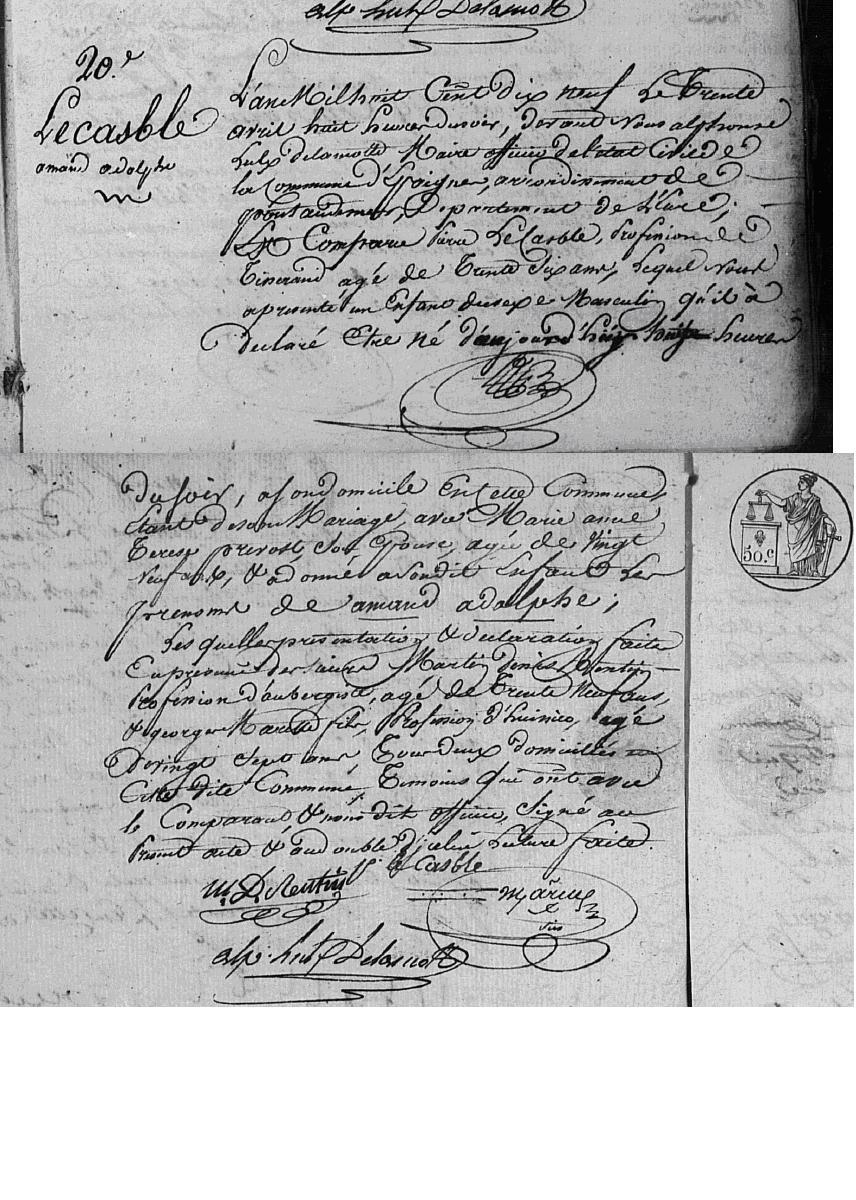 alp. hub. Delamotte
20.e
Lecasble
amand adolphe
L'an Mil huit Cent dix neuf Le Trente
avril huit heures du soir, devant Nous alphonse
hulp delamotte Maire officier de l'état Civil de
la Commune d'Epaignes, arrondissement de
pontaudemer, Departement de L'Eure;
Est Comparu Pierre LeCasble, Profession de
Tisserand agé de Trente Six ans, Lequel Nous
a presenté un Enfant du sexe Masculin qu'il à
declaré Etre né d'aujourd'huy huit heures
du soir, a son domicile En Cette Commune
Etant de son Mariage, avec Marie anne
Terese prevost, Son Epouse, agée de Vingt
Neuf ans, & a donné a Son dit Enfant Les
prenoms de amand adolphe;
Les quelles presentation & declaration faite
En presence des sieurs Martin denis Rentin
Profession d'aubergiste, agé de Trente Neuf ans,
& george Marette fils, Profession d'huissier, agé
De vingt Sept ans, Tous deux domiciliés en
Cette dite Commune, Temoins qui ont avec
le Comparant & nous dit officier, Signé au
Present acte & au double d'jcelui Lecture faite.
m. D. Rentin P. le Casble
fils
alp. hub. Delamotte
50.c